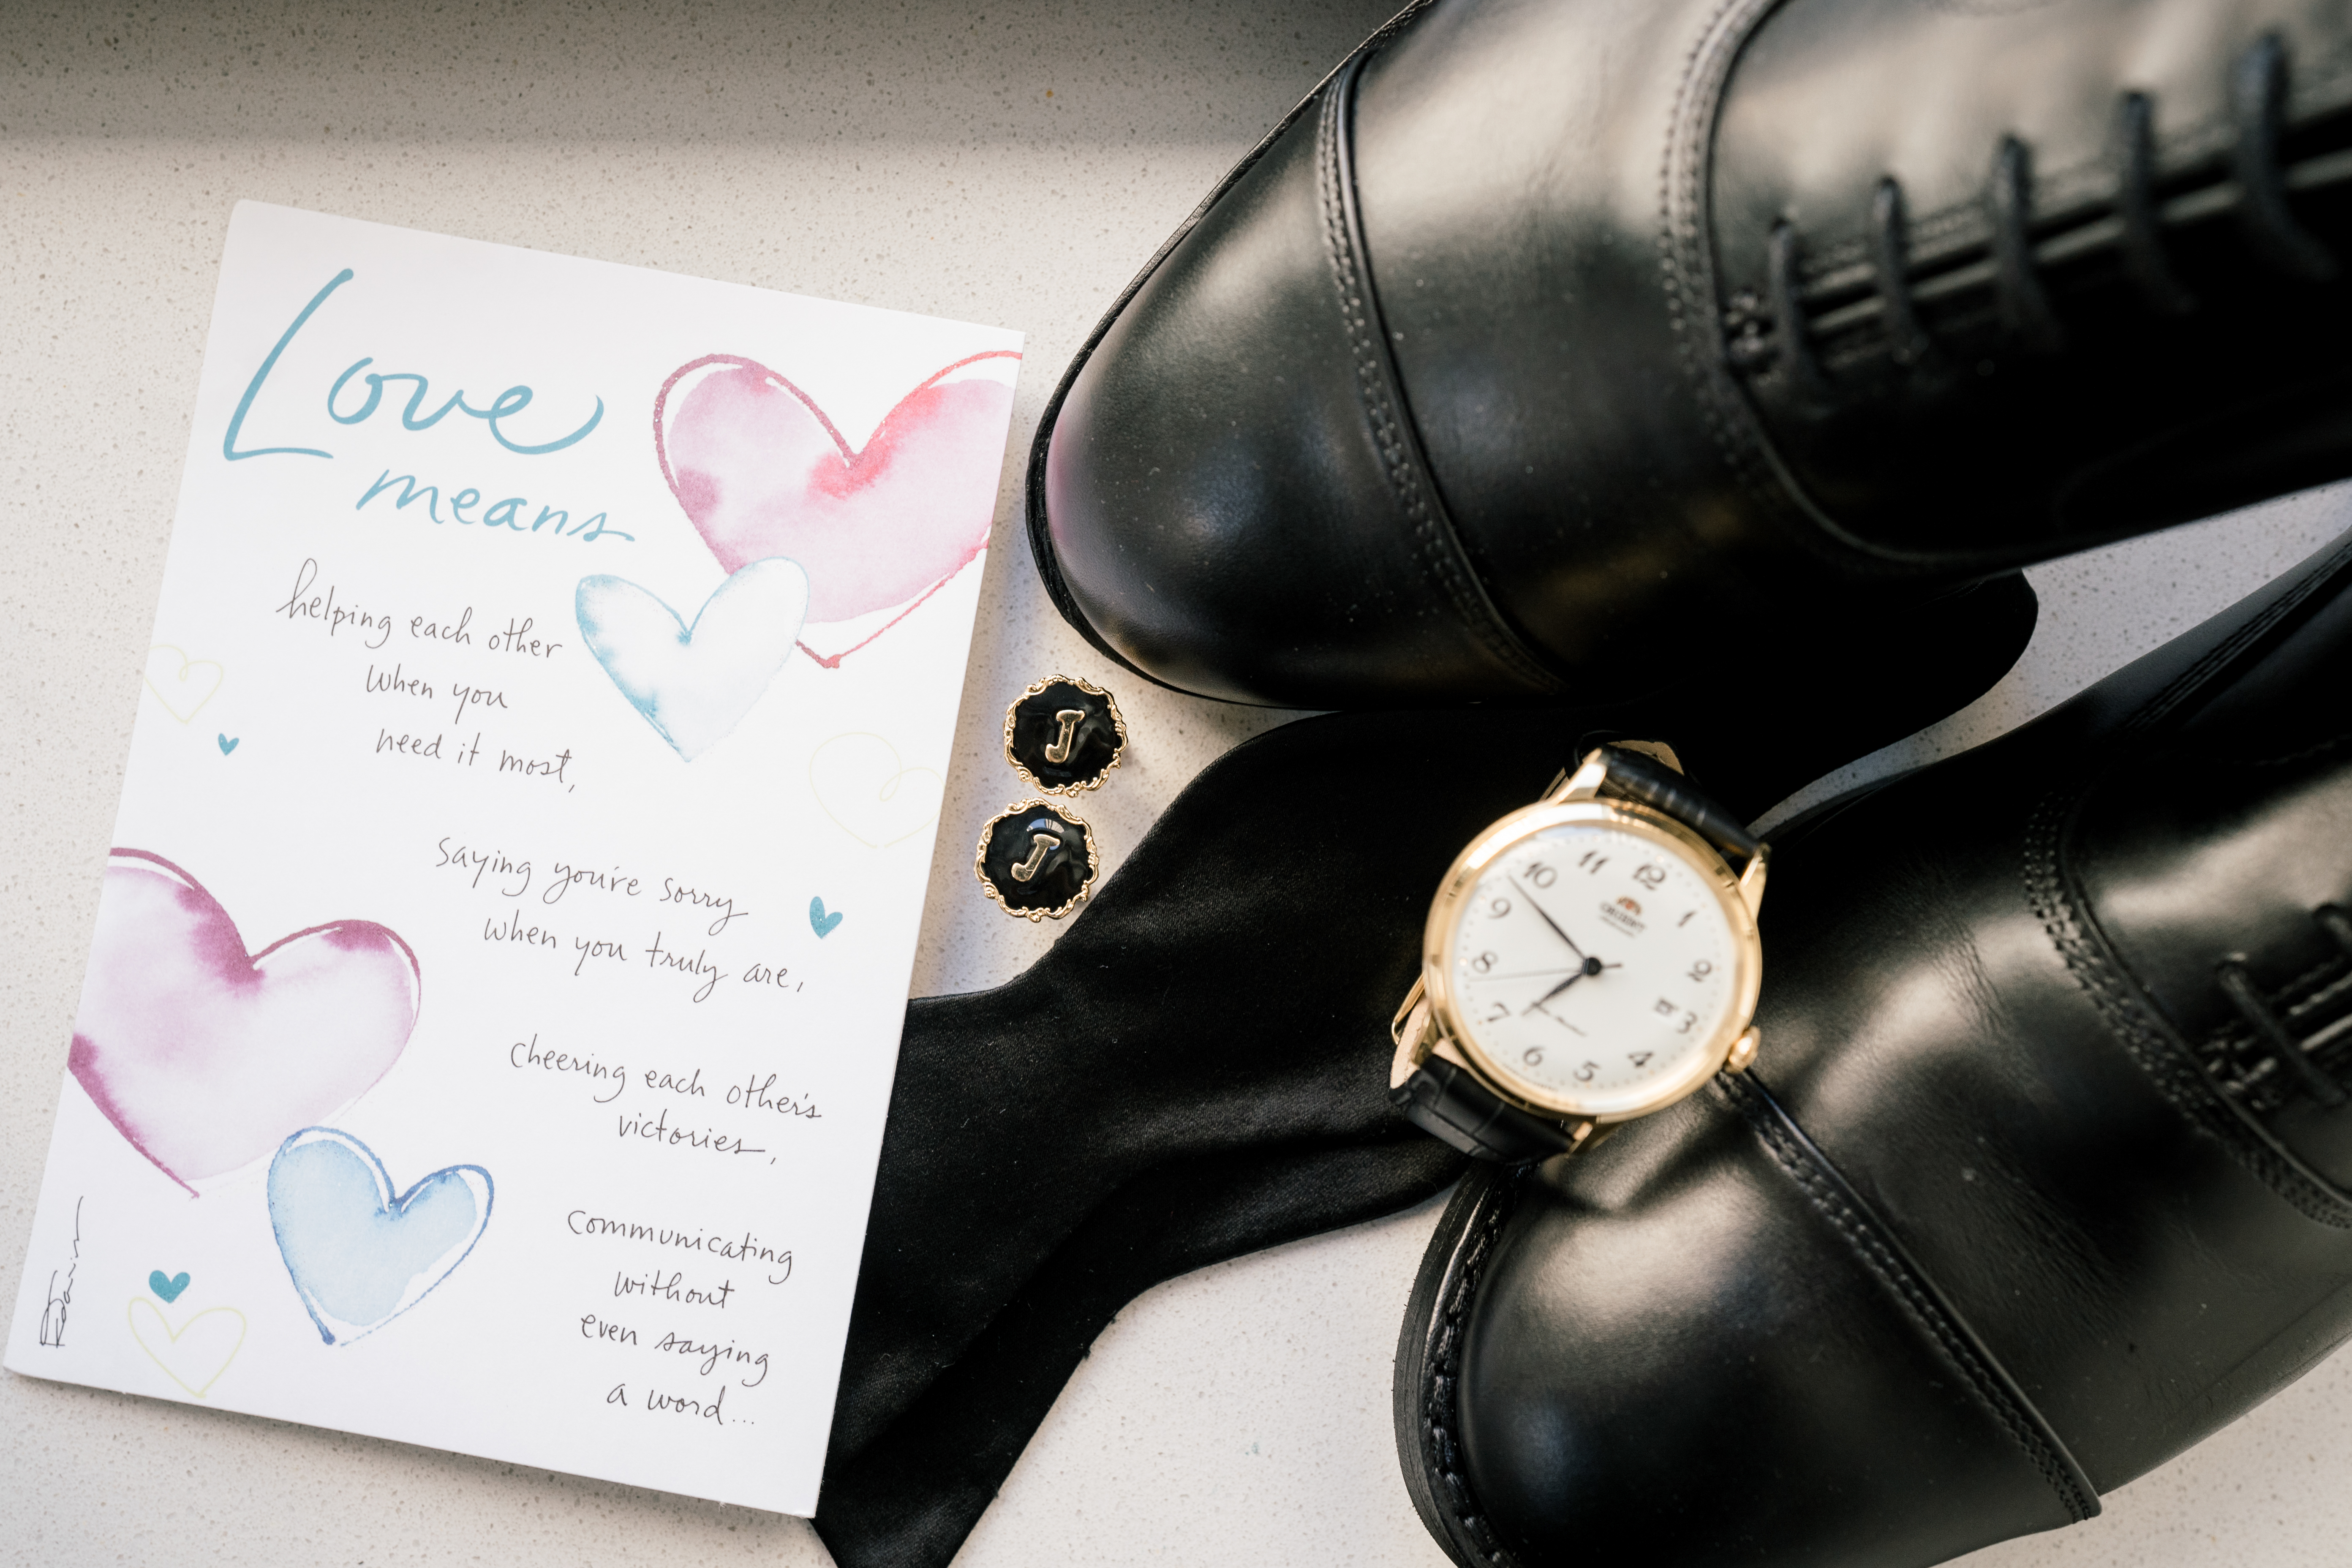 Love
means
helping each other
when you
need it most,
saying you're sorry
when you truly are,
cheering each other's
victories,
communicating
without
even saying
a word...
J
J
12
1
2
3
4
5
6
7
8
9
10
11
ORIENT